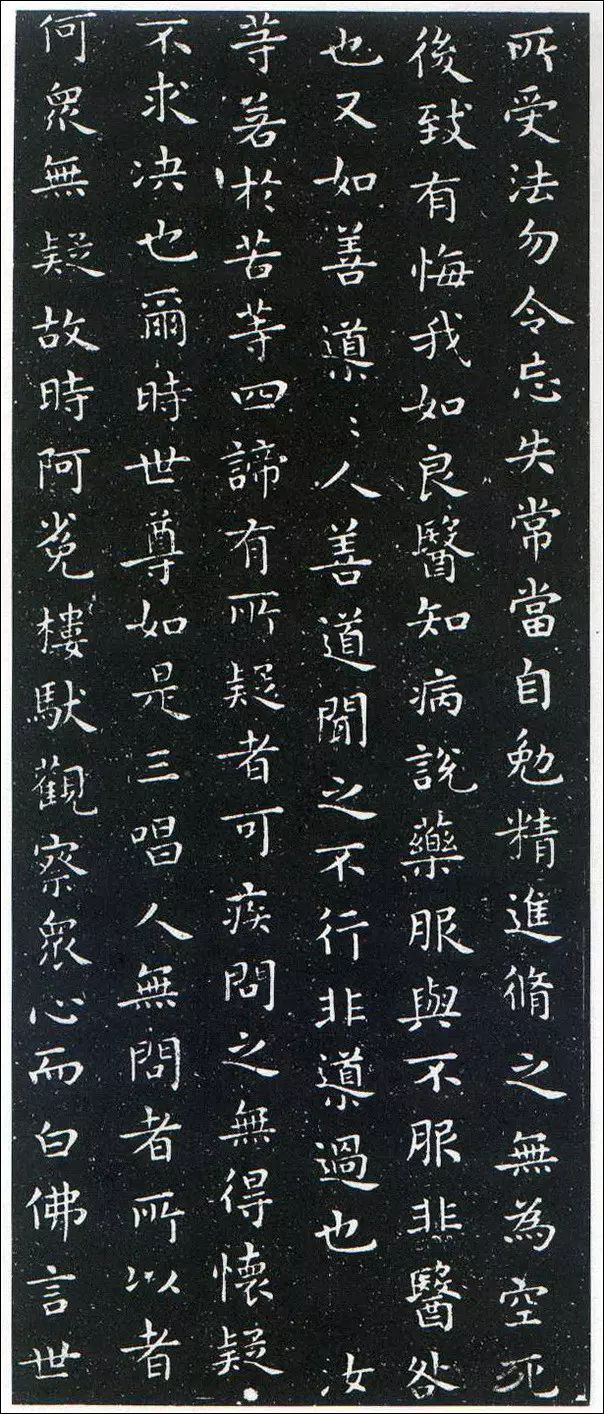 所受法勿令忘失常當自勉精進脩之無為空死
後致有悔我如良醫知病說藥服與不服非醫咎
也又如善導〻人善道聞之不行非導過也　汝
等若於苦等四諦有所疑者可疾問之無得懷疑
不求决也爾時世尊如是三唱人無問者所以者
何眾無疑故時阿㝹樓馱觀察眾心而白佛言世